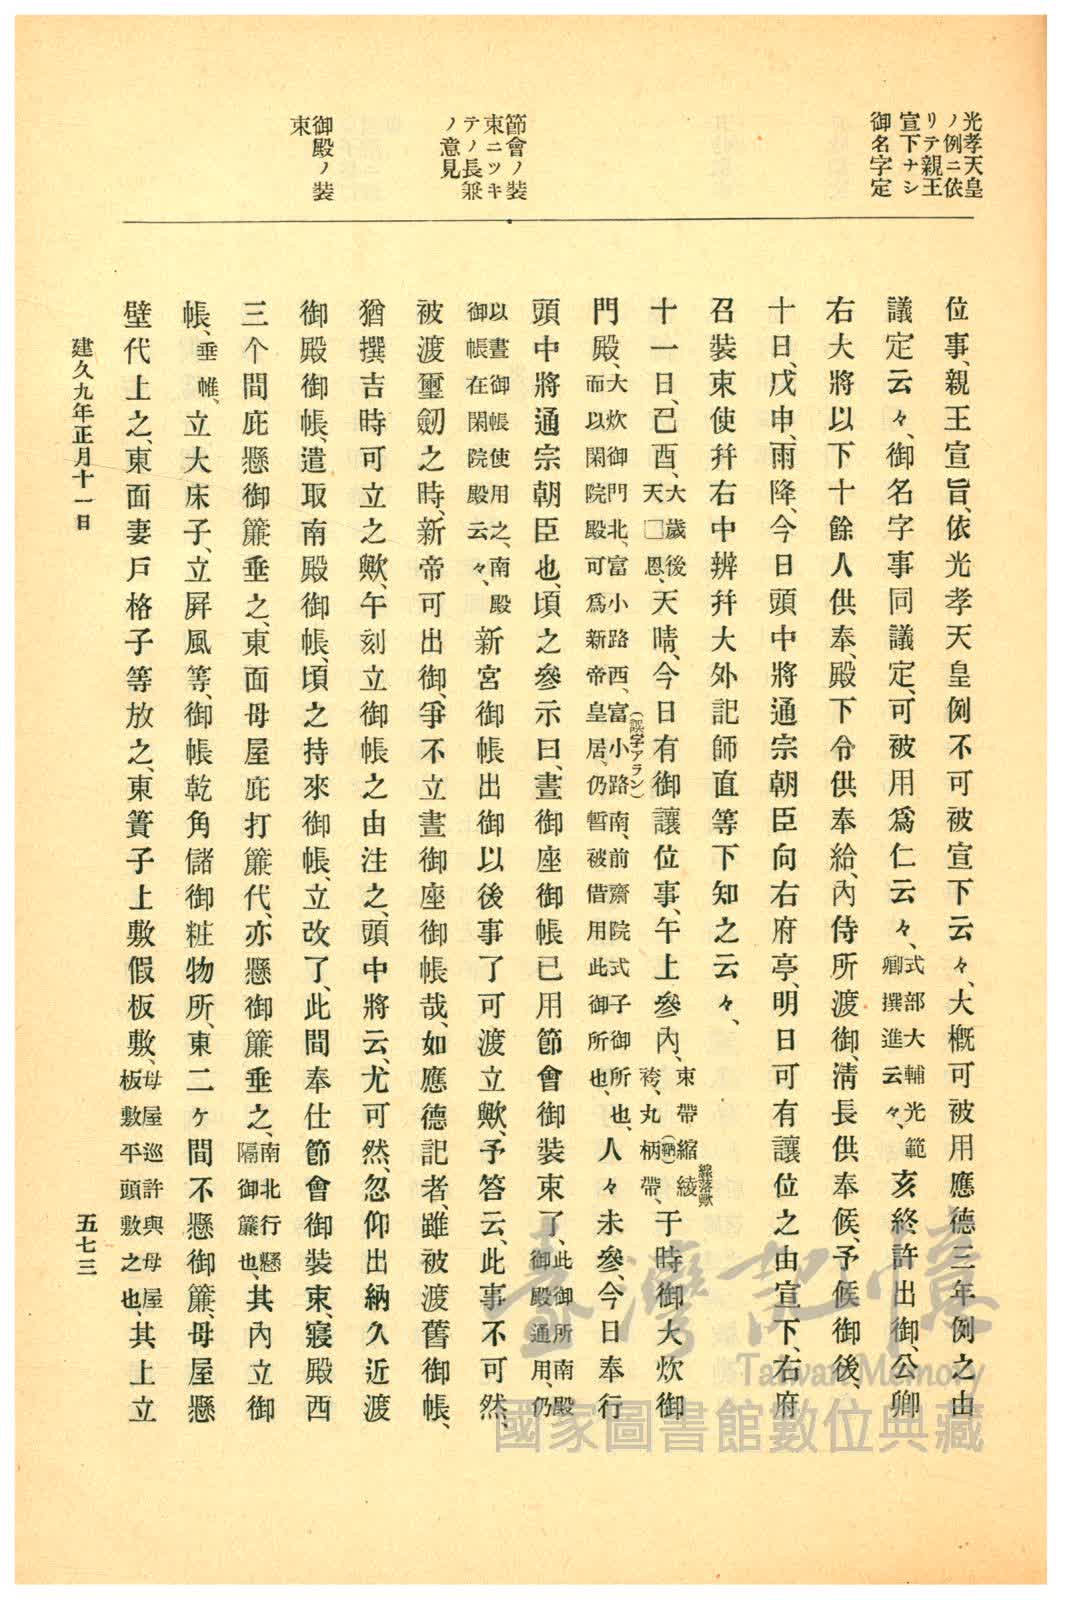 光孝天皇
ノ例ニ依
リテ親王
宣下ナシ
御名字定
節會ノ裝
束ニツキ
テノ長兼
ノ意見
御殿ノ裝
束
位事、親王宣旨、依光孝天皇例不可被宣下云々、大概可被用應德三年例之由
議定云々、御名字事同議定、可被用爲仁云々、式部大輔光範卿撰進云々、亥終許出御、公卿
右大將以下十餘人供奉、殿下令供奉給、內侍所渡御、淸長供奉候、予候御後、
十日、戊申、雨降、今日頭中將通宗朝臣向右府亭、明日可有讓位之由宣下、右府
召裝束使幷右中辨幷大外記師直等下知之云々、
十一日、己酉、大歲後天□恩、天晴、今日有御讓位事、午上參內、束帶縮綾(線落歟)袴、丸柄(鞆)帶、于時御大炊御
門殿、大炊御門北、富小路西、富小路南、(誤字アラン)前齋院式子御所也、而以閑院殿可爲新帝皇居、仍暫被借用此御所也、人々未參、今日奉行
頭中將通宗朝臣也、頃之參示曰、晝御座御帳已用節會御裝束了、此御所南殿御殿通用、仍
以晝御帳使用之、南殿御帳在閑院殿云々、新宮御帳出御以後事了可渡立歟、予答云、此事不可然、
被渡璽劒之時、新帝可出御、爭不立晝御座御帳哉、如應德記者、雖被渡舊御帳、
猶撰吉時可立之歟、午刻立御帳之由注之、頭中將云、尤可然、忽仰出納久近渡
御殿御帳、遣取南殿御帳、頃之持來御帳、立改了、此間奉仕節會御裝束、寢殿西
三个間庇懸御簾垂之、東面母屋庇打簾代、亦懸御簾垂之、南北行懸隔御簾也、其內立御
帳、垂帷、立大床子、立屛風等、御帳乾角儲御粧物所、東二ヶ間不懸御簾、母屋懸
壁代上之、東面妻戶格子等放之、東簀子上敷假板敷、母屋巡許與母屋板敷平頭敷之也、其上立
建久九年正月十一日
五七三
臺灣記憶
Taiwan Memory
國家圖書館數位典藏